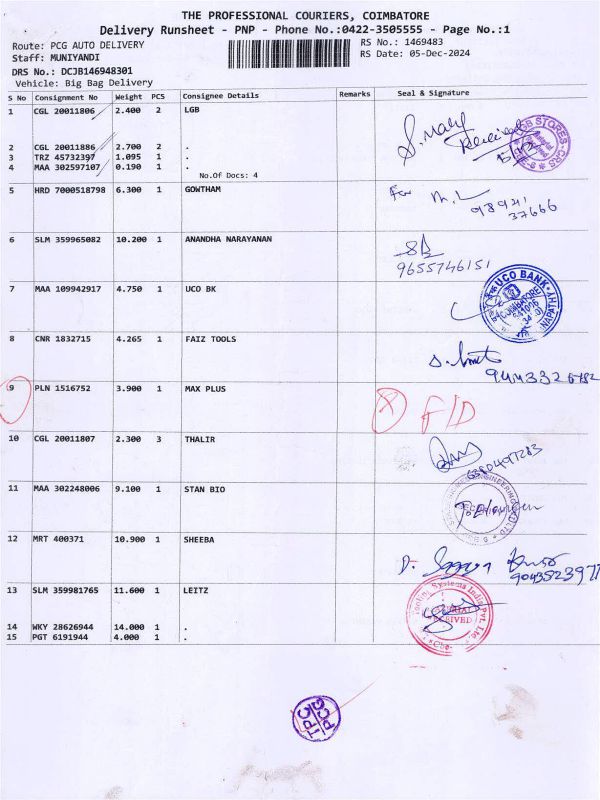 THE PROFESSIONAL COURIERS, COIMBATORE
Delivery Runsheet - PNP - Phone No.:0422-3505555 - Page No.:1
Route: PCG AUTO DELIVERY RS No.: 1469483
Staff: MUNIYANDI RS Date: 05-Dec-2024
DRS No.: DCJB146948301
Vehicle: Big Bag Delivery
S No Consignment No Weight PCS Consignee Details Remarks Seal & Signature
1 CGL 20011806 2.400 2 LGB
S. Mary
2 CGL 20011886 2.700 2 .
3 TRZ 45732397 1.095 1 .
4 MAA 302597107 0.190 1 .
No.Of Docs: 4
5 HRD 7000518798 6.300 1 GOWTHAM
For M. L
98941
37666
6 SLM 359965082 10.200 1 ANANDHA NARAYANAN
9655746151
7 MAA 109942917 4.750 1 UCO BK
UCO BANK
COIMBATORE
641006
8 CNR 1832715 4.265 1 FAIZ TOOLS
9 PLN 1516752 3.900 1 MAX PLUS
F/D
10 CGL 20011807 2.300 3 THALIR
11 MAA 302248006 9.100 1 STAN BIO
12 MRT 400371 10.900 1 SHEEBA
13 SLM 359981765 11.600 1 LEITZ
Tooling Systems India Pvt. Ltd.
RECEIVED
14 WKY 28626944 14.000 1 .
15 PGT 6191944 4.000 1 .
TPC
PCG